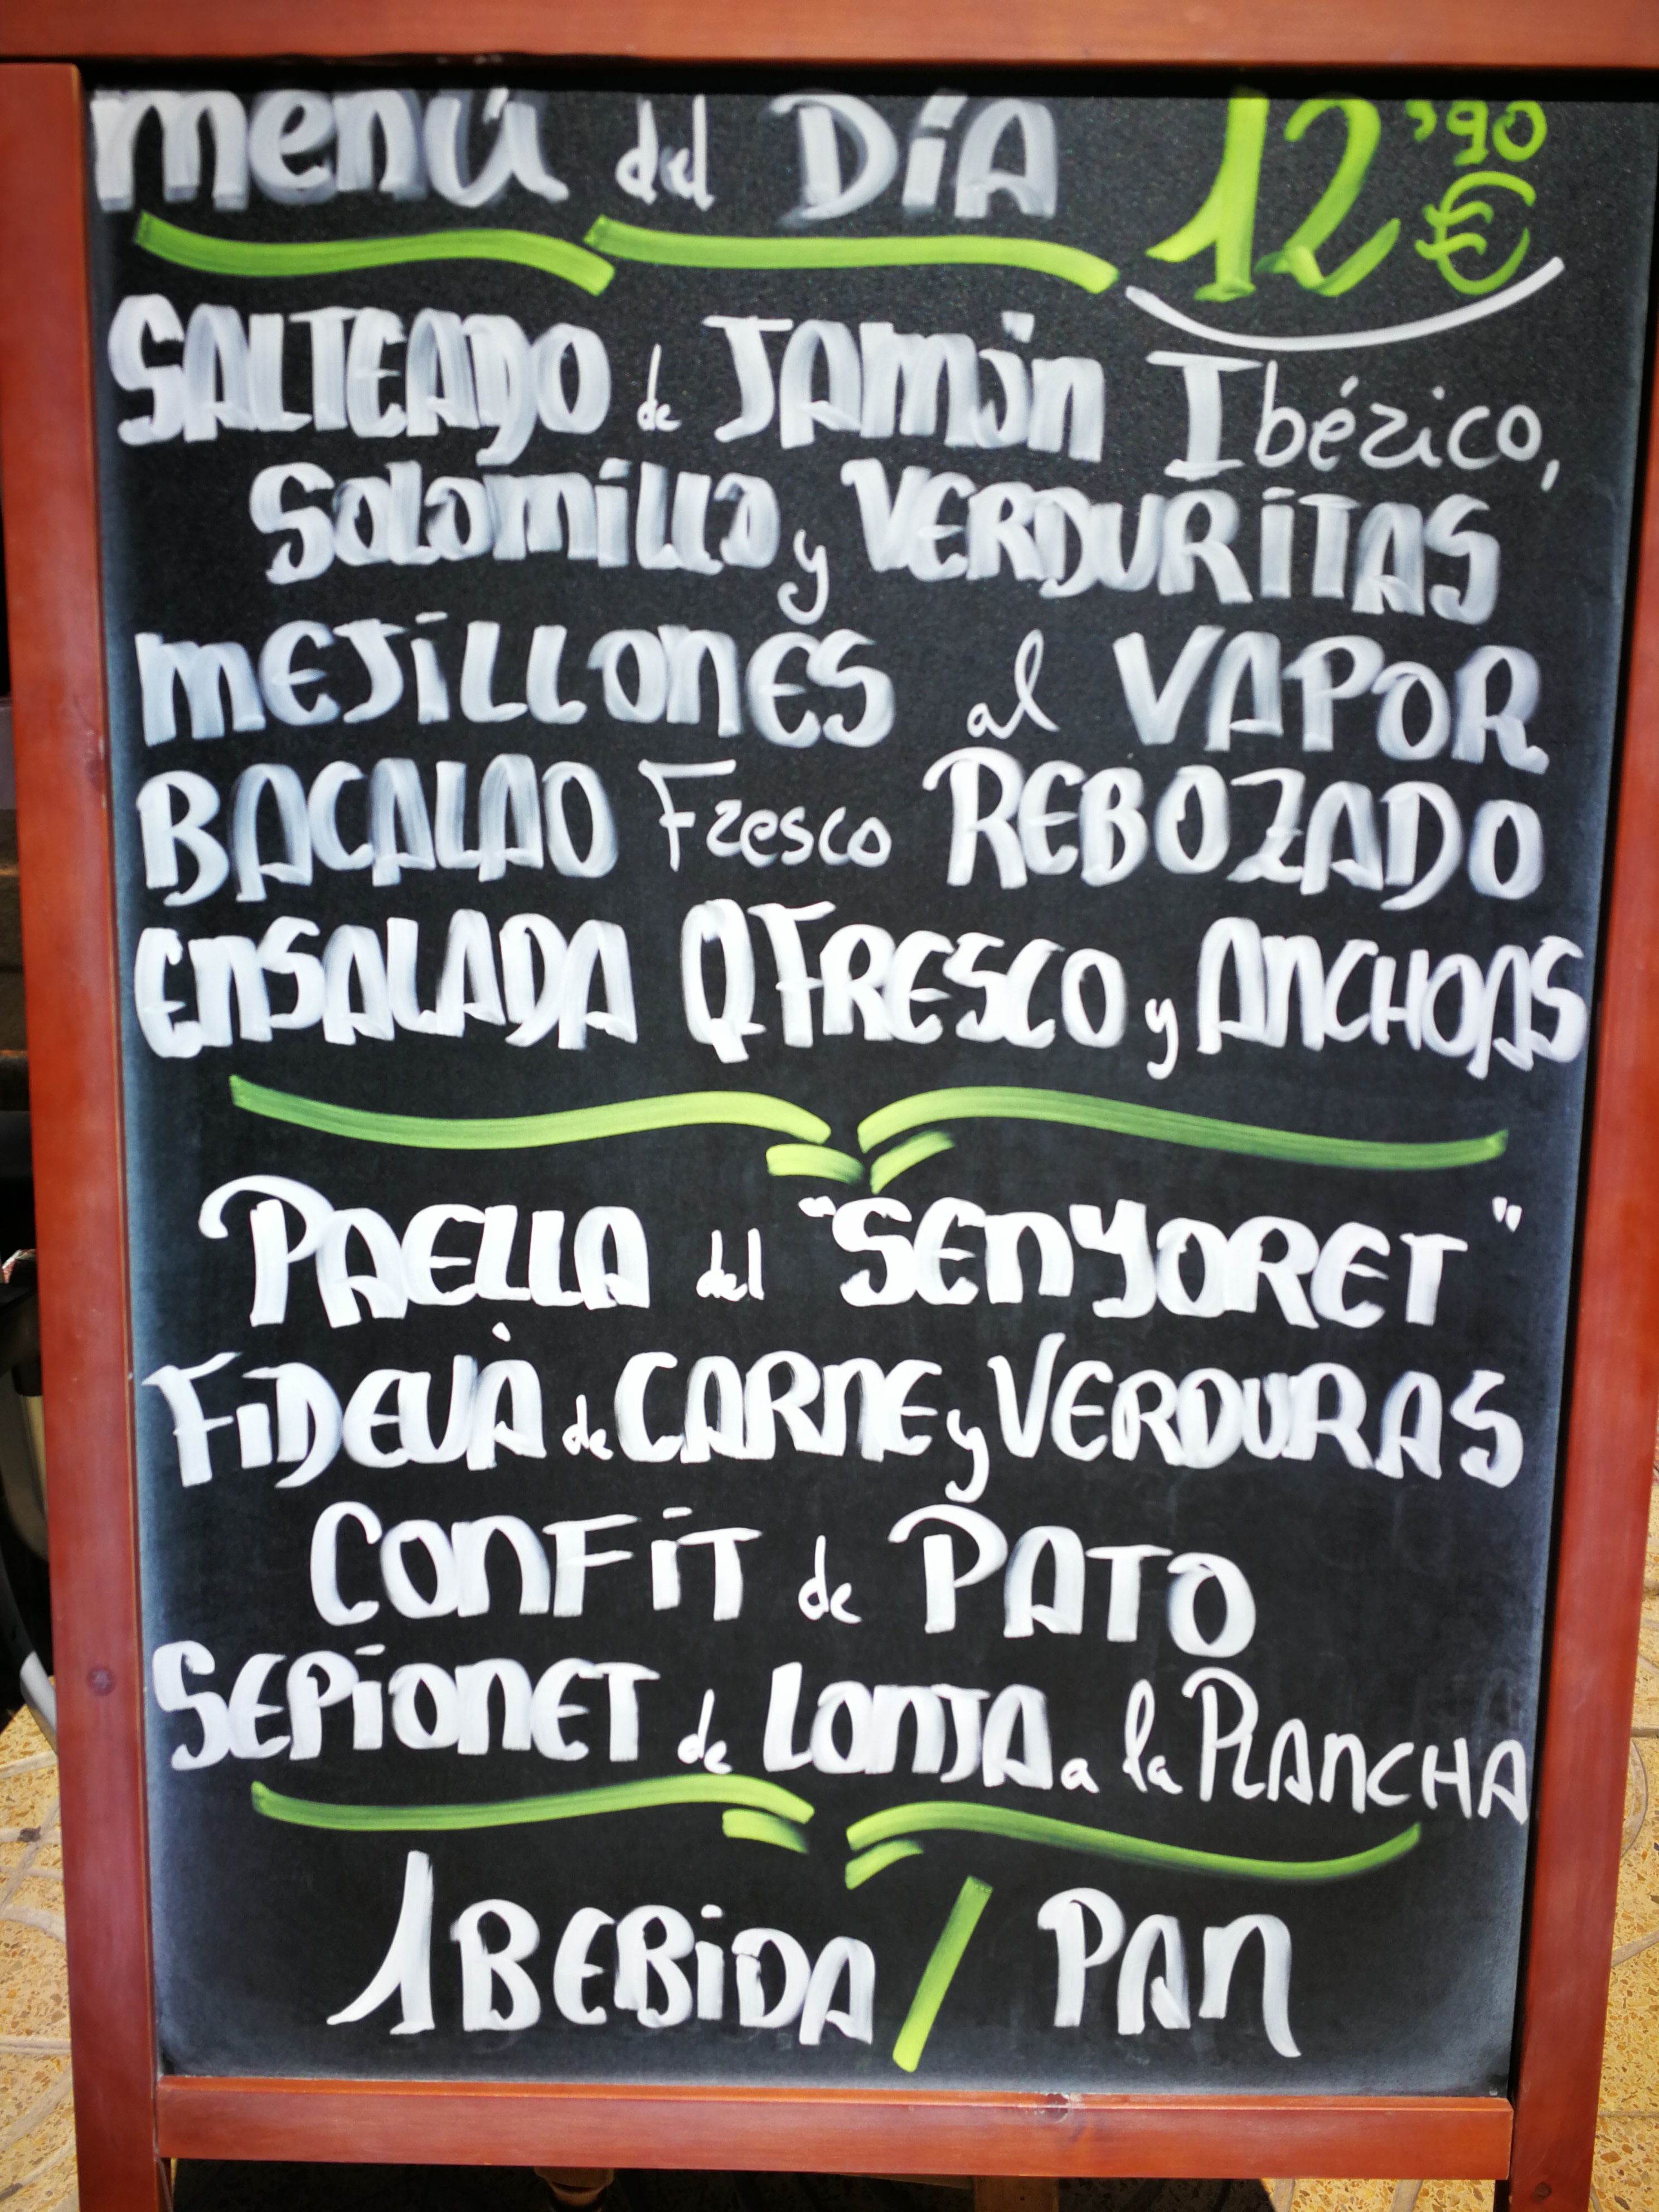 Menú del DíA 12'90 €
SALTEADO de JAMÓN Ibérico,
SOLOMILLO y VERDURITAS
MEJILLONES al VAPOR
BACALAO Fresco REBOZADO
ENSALADA QFRESCO y ANCHOAS
PAELLA del "SENYORET"
FIDEUÀ de CARNE y VERDURAS
CONFIT de PATO
SEPIONET de LONJA a la PLANCHA
1 BEBIDA / PAN